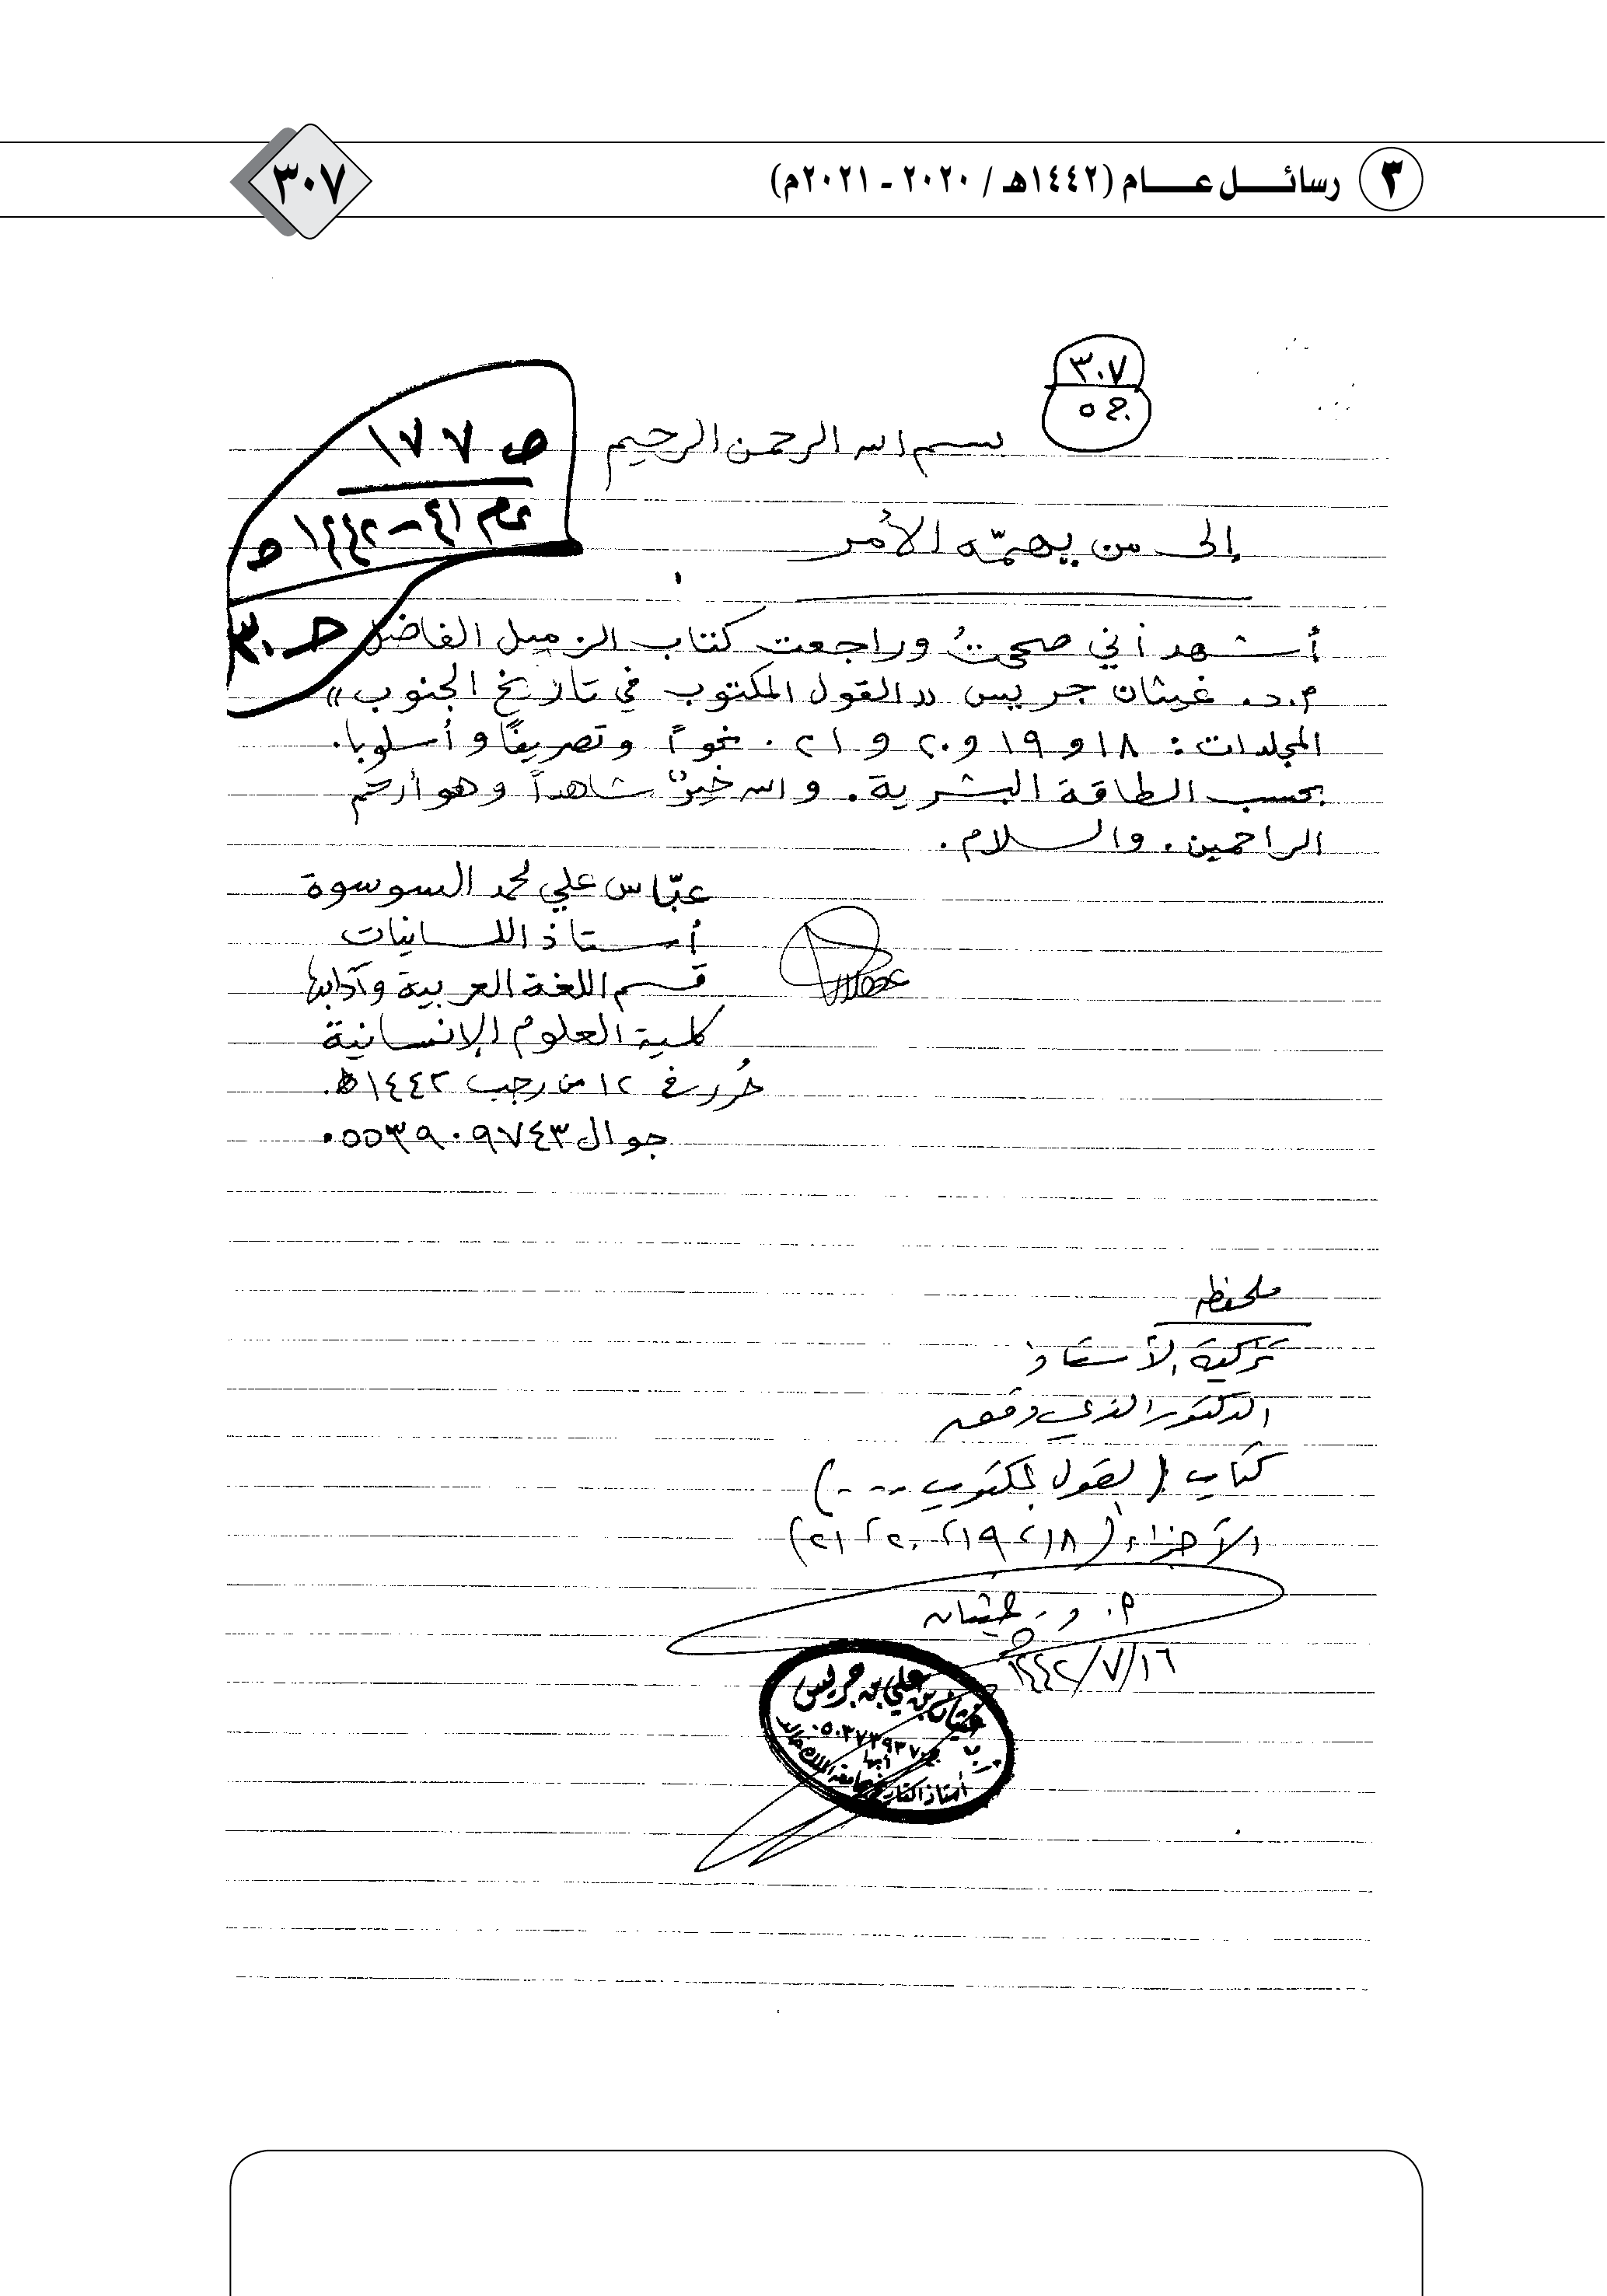 ٣ رسائل عام (١٤٤٢هـ / ٢٠٢٠ - ٢٠٢١م)
٣٠٧
٣٠٧
ج ٥
ص ١٧٧
عام ٤١-١٤٤٢ ه
جـ ٣٠
بسم الله الرحمن الرحيم
إلى من يهمّه الأمر
أشهد أني صححتُ وراجعت كتاب الزميل الفاضل
م.د. غيثان جريس «القول المكتوب في تاريخ الجنوب»
المجلدات: ١٨ و ١٩ و ٢٠ و ٢١ . نحواً وتصريفًا وأسلوبا.
بحسب الطاقة البشرية. والله خيرٌ شاهداً وهو أرحم
الراحمين. والسلام.
عبّاس علي محمد السوسوة
أستاذ اللسانيات
قسم اللغة العربية وآدابها
كلية العلوم الإنسانية
حُرر في ١٢ من رجب ١٤٤٢ه.
جوال ٠٥٥٣٩٠٩٧٤٣
ملحظه
تزكية الأستاذ
الدكتور الذي دقق
كتاب (القول المكتوب ---)
الأجزاء (١٨، ١٩، ٢٠، ٢١)
م. د. غيثان
١٤٤٢/٧/١٦
غيثان بن علي بن جريس
٠٥٠٣٧٣٩٣٧
أبها
أستاذ التاريخ بجامعة الملك خالد